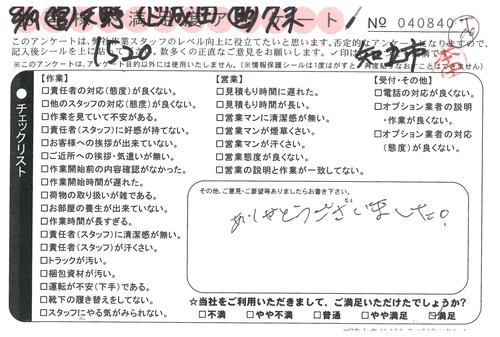 お客様満足度アンケート
No 040840
1530
知立市
このアンケートは、弊社作業スタッフのレベル向上に役立てたいと思います。否定的なアンケートになりますので、
記入後シールを上に貼って
数多くのご意見をお願いします。
※このアンケートは、アンケート目的以外には使用いたしません。
チェックリスト
【作業】
□責任者の対応(態度)が良くない。
□他のスタッフの対応(態度)が良くない。
□作業を見ていて不安がある。
□責任者(スタッフ)に好感が持てない。
□お客様への挨拶が出来ていない。
□ご近所への挨拶・気遣いが無い。
□作業開始前の内容確認がなかった。
□作業開始時間が遅れた。
□荷物の取り扱いが雑である。
□お部屋の養生が出来ていない。
□作業時間が長すぎる。
□責任者(スタッフ)に清潔感が無い。
□責任者(スタッフ)が汗くさい。
□トラックが汚い。
□梱包資材が汚い。
□運転が不安(下手)である。
□靴下の履き替えをしてない。
□スタッフにやる気がみられない。
【営業】
□見積もり時間に遅れた。
□見積もり時間が長い。
□営業マンに清潔感が無い。
□営業マンが煙草くさい。
□営業マンが汗くさい。
□営業態度が良くない。
□営業の説明と作業が一致してない。
【受付・その他】
□電話の対応が良くない。
□オプション業者の説明
・作業が良くない。
□オプション業者の対応
(態度)が良くない。
その他、ご意見・ご要望等ありましたらお書き下さい。
ありがとうございました。
☆当社をご利用いただきまして、ご満足いただけたでしょうか?
□不満 □やや不満 □普通 □やや満足 ☑満足